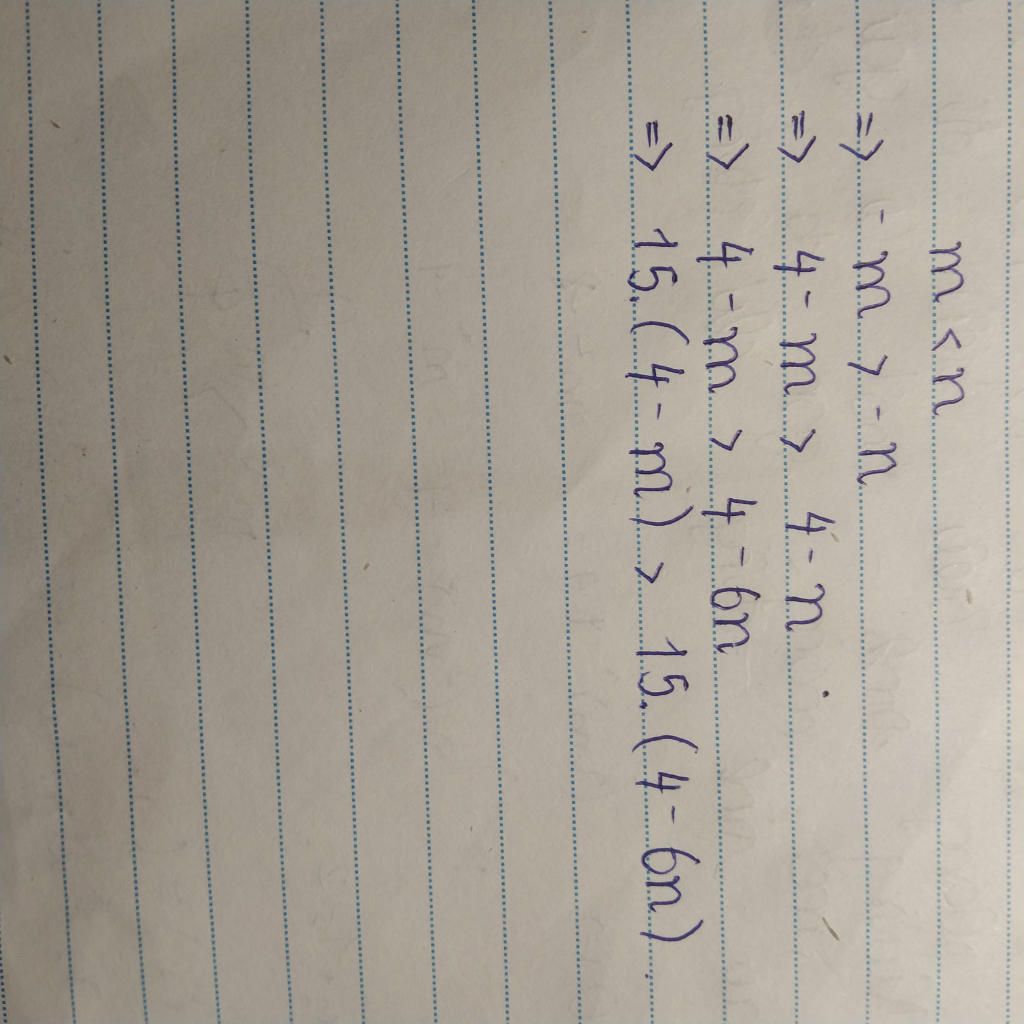 m < n
=> - m > - n
=> 4 - m > 4 - n
=> 4 - m > 4 - 6n
=> 15.(4 - m) > 15.(4 - 6n)